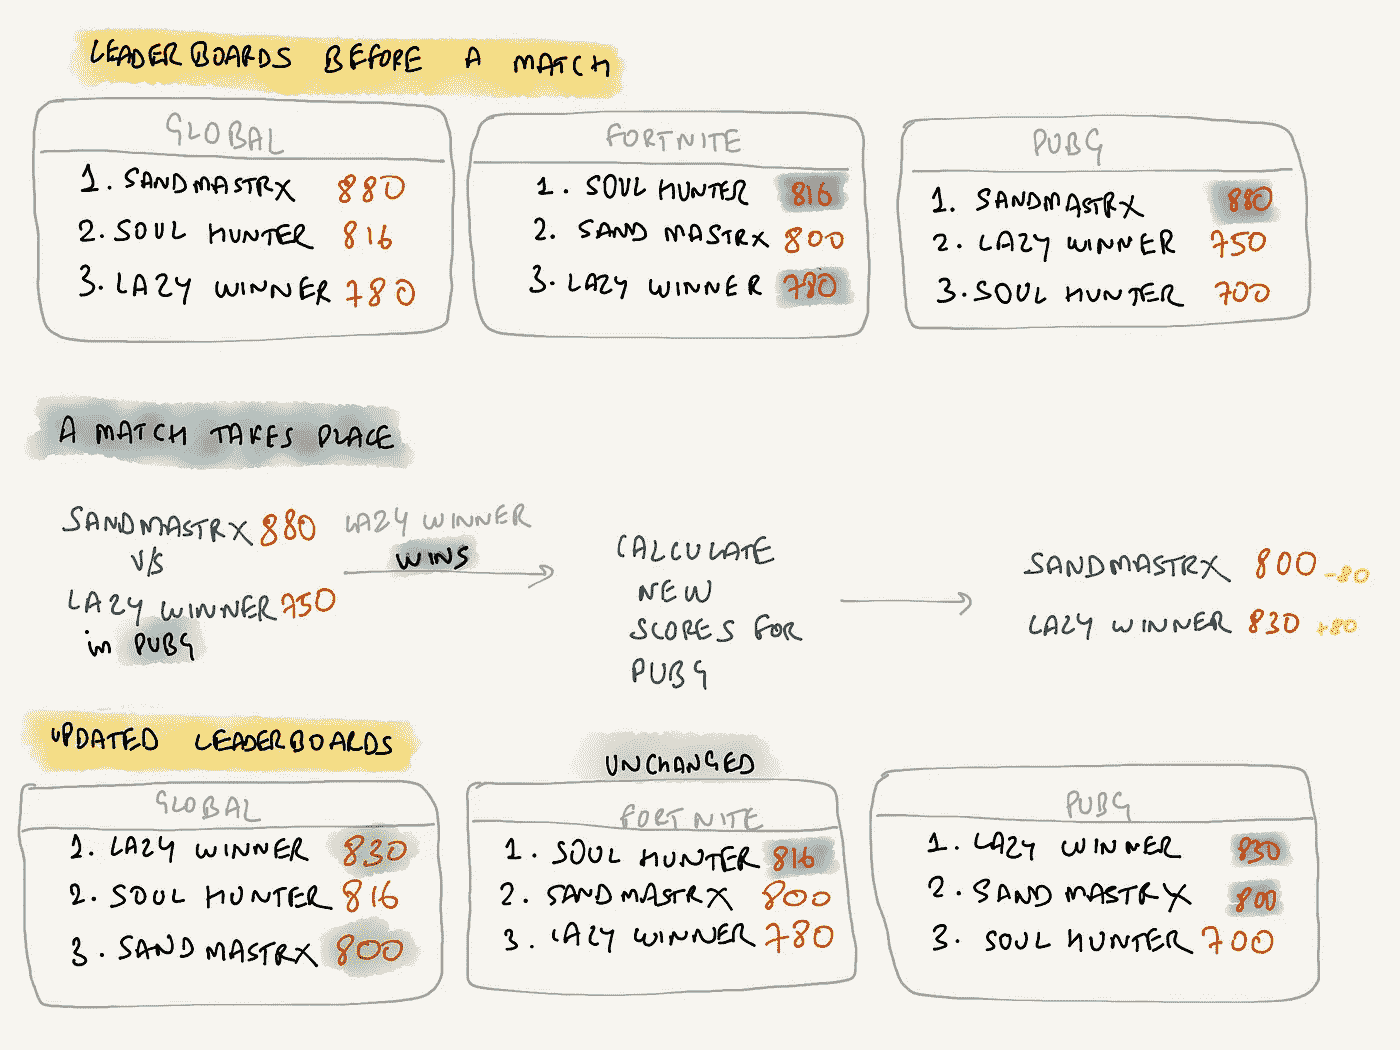 LEADERBOARDS BEFORE A MATCH
GLOBAL
1. SANDMASTRX 880
2. SOUL HUNTER 816
3. LAZY WINNER 780
FORTNITE
1. SOUL HUNTER 816
2. SAND MASTRX 800
3. LAZY WINNER 780
PUBG
1. SANDMASTRX 880
2. LAZY WINNER 750
3. SOUL HUNTER 700
A MATCH TAKES PLACE
SANDMASTRX 880
V/S
LAZY WINNER 750
in PUBG
LAZY WINNER
WINS
CALCULATE
NEW
SCORES FOR
PUBG
SANDMASTRX 800 -80
LAZY WINNER 830 +80
UPDATED LEADERBOARDS
GLOBAL
1. LAZY WINNER 830
2. SOUL HUNTER 816
3. SAND MASTRX 800
UNCHANGED
FORTNITE
1. SOUL HUNTER 816
2. SANDMASTRX 800
3. LAZY WINNER 780
PUBG
1. LAZY WINNER 830
2. SAND MASTRX 800
3. SOUL HUNTER 700